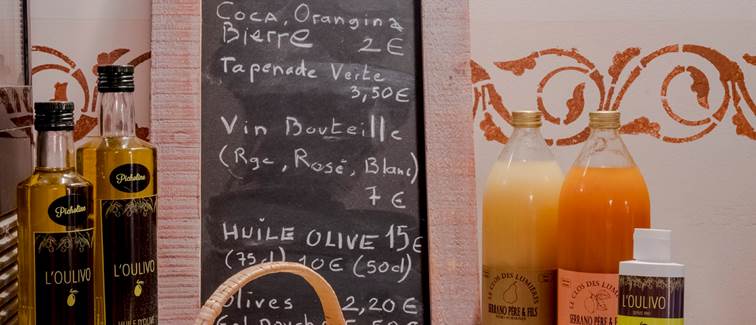 Coca, Orangina
Bierre 2€
Tapenade Verte
3,50€
Vin Bouteille
(Rge, Rosé, Blanc)
7€
HUILE OLIVE 15€
(75cl) 10€ (50cl)
Olives 2,20€
Gel Douche 5,50€
L'OULIVO
Picholine
Picholine
L'OULIVO
HUILE D'OLIVE
LE CLOS DES LUMIÈRES
SERRANO PÈRE & FILS
LE CLOS DES LUMIÈRES
SERRANO PÈRE & FILS
L'OULIVO